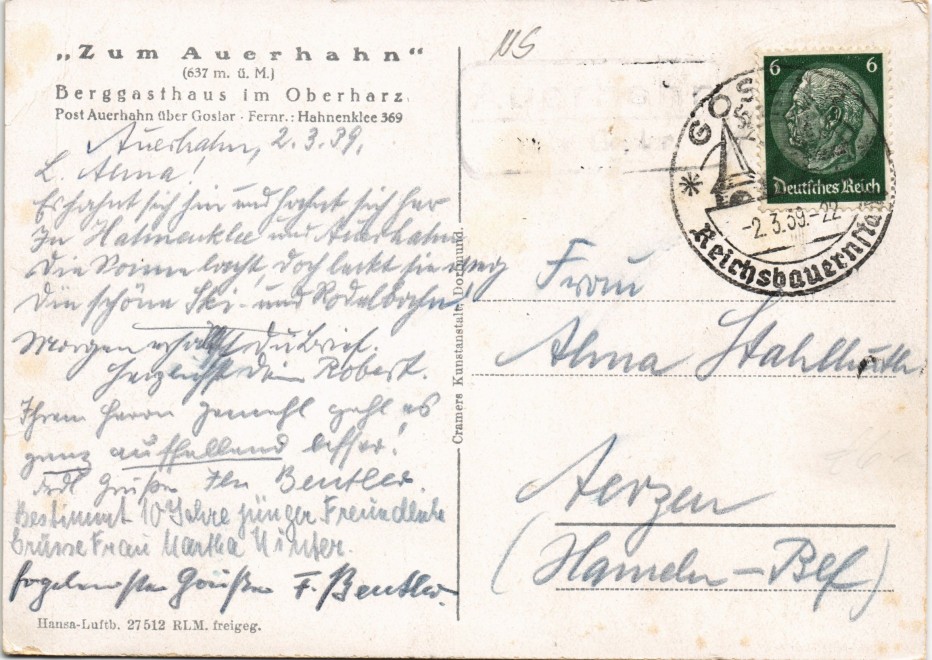 „Zum Auerhahn“
(637 m. ü. M.)
Berggasthaus im Oberharz
Post Auerhahn über Goslar · Fernr.: Hahnenklee 369
Auerhahn, 2.3.39.
L. Alma!
Es hahnt sich hin und hahnt sich her
In Hahnenklee und Auerhahn
Die Sonne lacht, doch leckt sie weg
Die schöne Ski- und Rodelbahn!
Morgen erhältst Du Brief.
Herzlichst Dein Robert.
Ihrem Herrn Gemahl geht es
ganz auffallend besser!
Frdl Grüße Ihr Bentler.
Bestimmt 10 Jahre jünger Freundliche
Grüsse Frau Martha Winter.
Grüße F. Bentler.
Hansa-Luftb. 27512 RLM. freigeg.
Cramers Kunstanstalt, Dortmund.
NS
6 6
Deutsches Reich
GOS
-2.3.39.-22
Reichsbauernstadt
Frau
Alma Stahlhuth
Aerzen
(Hameln-Bef)